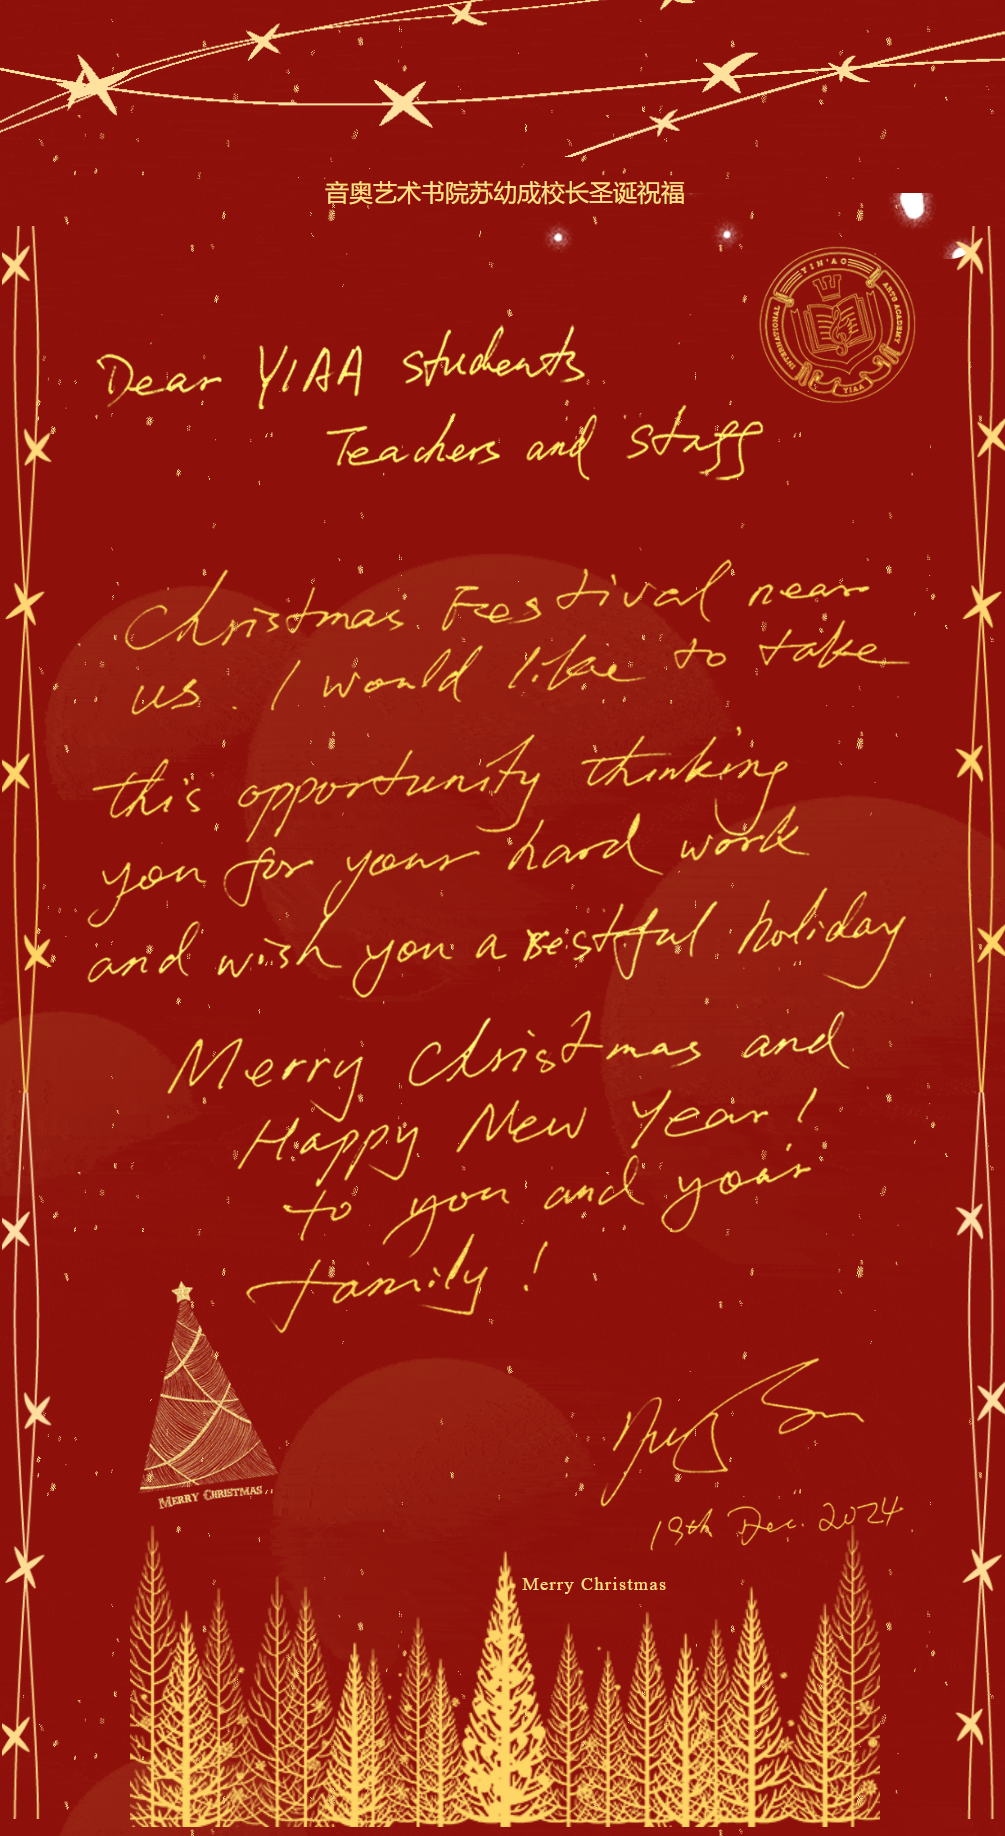 音奥艺术书院苏幼成校长圣诞祝福
YIN'AO
INTERNATIONAL
ARTS ACADEMY
YIAA
Dear YIAA students
Teachers and Staff
Christmas Festival near
us. I would like to take
this opportunity thinking
you for your hard work
and wish you a restful holiday
Merry Christmas and
Happy New Year!
to you and your
family!
19th Dec. 2024
MERRY CHRISTMAS
Merry Christmas